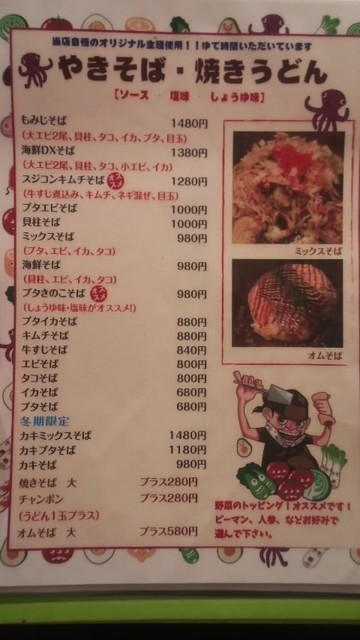 当店自慢のオリジナル生麺使用!!ゆで時間いただいています
やきそば・焼きうどん
[ソース 塩味 しょうゆ味]
もみじそば 1480円
(大エビ2尾、貝柱、タコ、イカ、ブタ、目玉)
海鮮DXそば 1380円
(大エビ2尾、貝柱、タコ、小エビ、イカ)
スジコンキムチそば 1280円
(牛すじ煮込み、キムチ、ネギ混ぜ、目玉)
ブタエビそば 1000円
貝柱そば 1000円
ミックスそば 980円
(ブタ、エビ、イカ、タコ)
海鮮そば 980円
(貝柱、エビ、イカ、タコ)
ブタきのこそば 980円
(しょうゆ味・塩味がオススメ!)
ブタイカそば 880円
キムチそば 880円
牛すじそば 840円
エビそば 800円
タコそば 800円
イカそば 680円
ブタそば 680円
冬期限定
カキミックスそば 1480円
カキブタそば 1180円
カキそば 980円
焼きそば 大 プラス280円
チャンポン プラス280円
(うどん1玉プラス)
オムそば 大 プラス580円
ミックスそば
オムそば
野菜のトッピング!オススメです!
ピーマン、人参、などお好みで
選んで下さい。